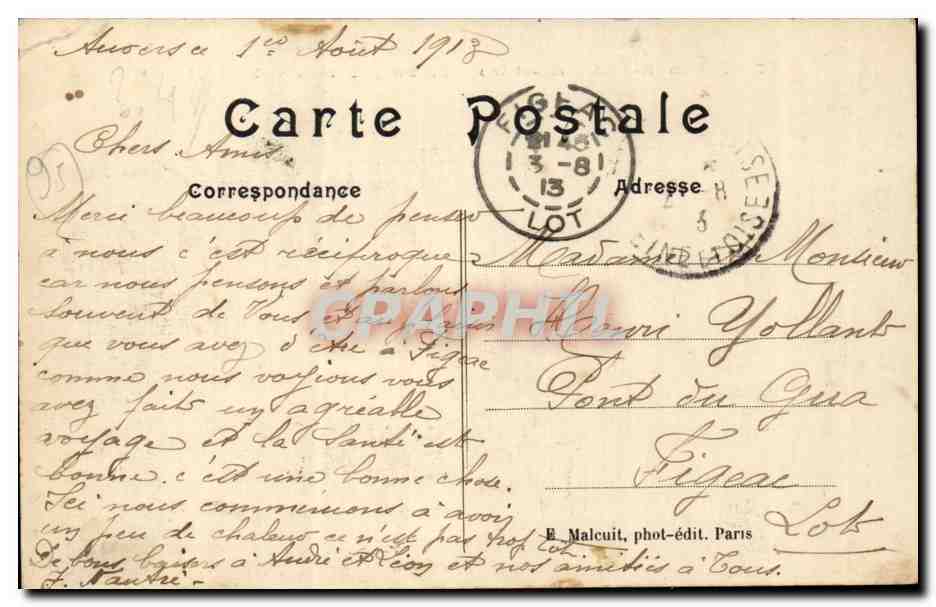 Auvers le 1er Août 1913
Carte Postale
Chers Amis.
95
FIGEAC
3 -8
13
LOT
SEINE ET OISE
Correspondance
Adresse
Merci beaucoup de penser
à nous c'est réciproque
car nous pensons et parlons
souvent de Vous et du plaisir
que vous avez d'être à Figeac
comme nous voyions vous
avez fait un agréable
voyage et la Santé est
bonne. c'est une bonne chose.
Ici nous commencions à avoir
un peu de chaleur ce n'est pas trop tôt.
De bons baisers à André et Léon et nos amitiés à Tous.
Madame Monsieur
Henri Yollant
Pont du Gua
Figeac
Lot
E. Malcuit, phot-édit. Paris
CPAPHIL